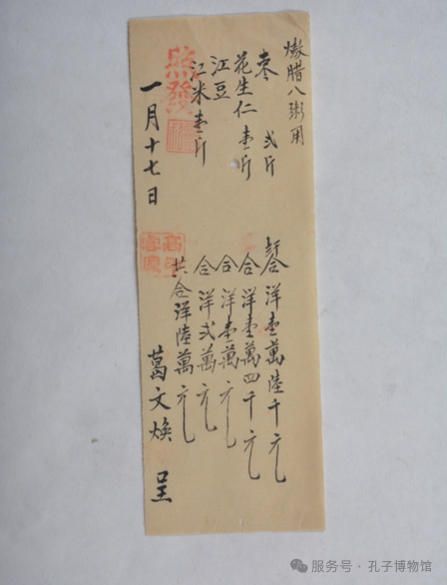 熬腊八粥用
枣 弍斤 計合洋壹萬陸千元
花生仁 壹斤 合洋壹萬四千元
江豆 合洋壹萬元
江米壹斤 合洋弍萬元
共合洋陸萬元
照發
一月十七日 葛文焕 呈
服务号 · 孔子博物馆